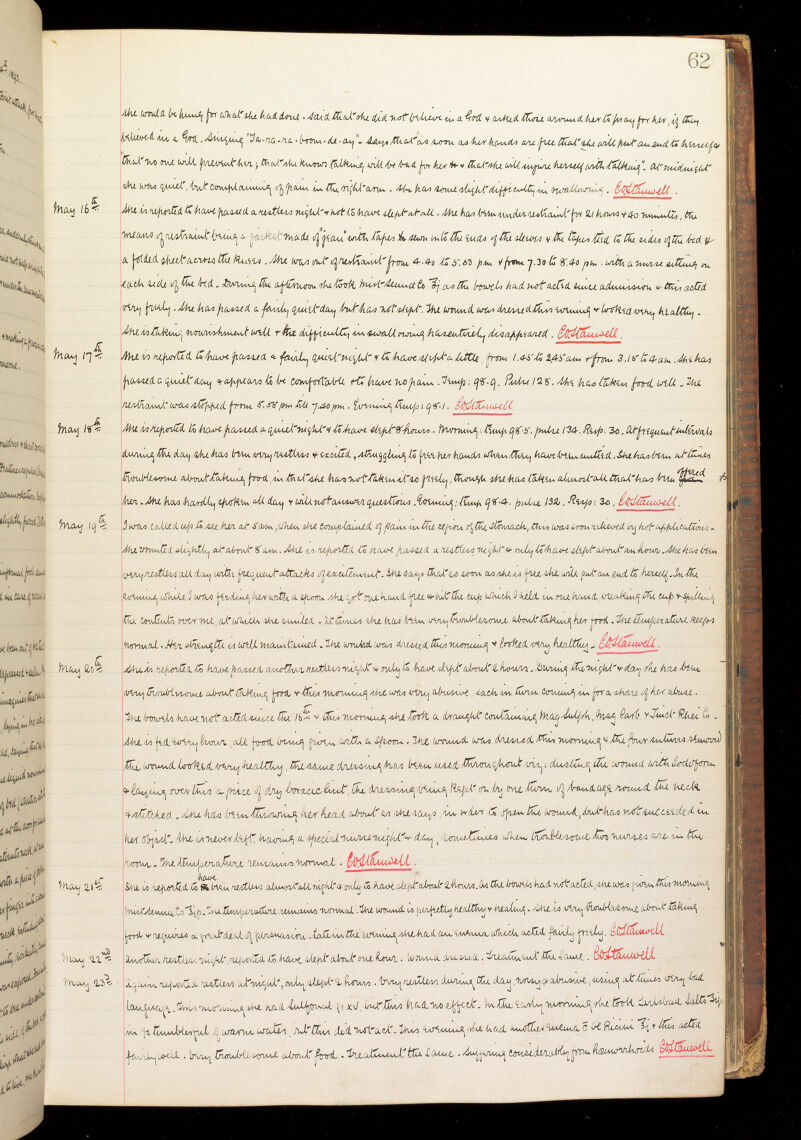 62
she would be hung for what she had done. Said that she did not believe in a God & asked those around her to pray for her, if they
believed in a God. Singing "Ta-ra-ra-boom-de-ay". Says that "as soon as her hands are free that she will put an end to herself &
"that no one will prevent her; that she knows talking will be bad for her & that she will injure herself with talking". At midnight
she was quiet, but complaining of pain in the right arm. She has some slight difficulty in swallowing. COStanwell.
May 16th She is reported to have passed a restless night & not to have slept at all. She has been under restraint for 21 hours & 40 minutes, the
means of restraint being a jacket made of "jean" with tapes sewn into the ends of the sleeves & the tapes tied to the sides of the bed &
a folded sheet across the knees. She was out of restraint from 4.40 to 5.50 pm & from 7.30 to 8.40 pm. with a nurse sitting on
each side of the bed. During the afternoon she took Mist Sennæ Co ℥j as the bowels had not acted since admission & this acted
very freely. She has passed a fairly quiet day but has not slept. The wound was dressed this evening & looked very healthy.
She is taking nourishment well & the difficulty in swallowing has entirely disappeared. COStanwell.
May 17th She is reported to have passed a fairly quiet night & to have slept a little from 1.45 to 2.45 am & from 3.15 to 4 am. She has
passed a quiet day & appears to be comfortable & to have no pain. Temp: 98.9. Pulse 128. She has taken food well. The
restraint was stopped from 5.55 pm till 7.40 pm. Evening temp: 98.1. COStanwell
May 18th She is reported to have passed a quiet night & to have slept 8 hours. Morning: temp 98.5. pulse 134. Resp: 30. At frequent intervals
during the day she has been very restless & excited, struggling to free her hands when they have been untied. She has been at times
troublesome about taking food in that she has not taken it so freely, though she has taken almost all that has been offered
her. She has hardly spoken all day & will not answer questions. Evening: temp 98.4. pulse 132. Resp: 30. COStanwell.
May 19th I was called up to see her at 5 am, when she complained of pain in the region of the stomach, this was soon relieved by hot applications.
She vomited slightly at about 8 am. She is reported to have passed a restless night & only to have slept about an hour. She has been
very restless all day with frequent attacks of excitement. She says that so soon as she is free she will put an end to herself. In the
evening while I was feeding her with a spoon she got one hand free & hit the cup which I held in one hand breaking the cup & spilling
the contents over me, at which she smiled. At times she has been very troublesome about taking her food. The temperature keeps
normal. Her strength is well maintained. The wound was dressed this morning & looked very healthy. COStanwell.
May 20th She is reported to have passed another restless night & only to have slept about 2 hours. During the night & day she has been
very troublesome about taking food & this morning she was very abusive, each in turn coming in for a share of her abuse.
The bowels have not acted since the 16th & this morning she took a draught containing Mag Sulph, Mag Carb & Tinct Rhei Co.
She is fed every hour, all food being given with a spoon. The wound was dressed this morning & the four sutures removed
the wound looked very healthy, the same dressing has been used throughout viz: dusting the wound with Iodoform
& laying over this a piece of dry boracic lint, the dressing being kept on by one turn of bandage round the neck
& stitched. She has been throwing her head about as she says, in order to open the wound, but has not succeeded in
her object. She is never left, having a special nurse night & day, sometimes when troublesome two nurses are in the
room. The temperature remains normal. COStanwell.
May 21st She is reported to have been restless almost all night & only to have slept about 2 hours. As the bowels had not acted, she was given this morning
Mist Sennæ Co. The temperature remains normal. The wound is perfectly healthy & healing. She is very troublesome about taking
food & requires a great deal of persuasion. Late in the evening she had an enema which acted fairly freely. COStanwell
May 22nd Another restless night, reported to have slept about one hour. Wound dressed. Treatment the same. COStanwell
May 23rd Again reported restless at night, only slept 2 hours. Very restless during the day, noisy & abusive, using at times very bad
language. This morning she had Sulfonal gr xv, but this had no effect. In the early morning she took Carlsbad Salts
in ½ tumblerful of warm water, but this did not act. This evening she had another enema c̄ Ol Ricini ℥j & this acted
fairly well. Very troublesome about food. Treatment the same. Suffering considerably from hæmorrhoids COStanwell